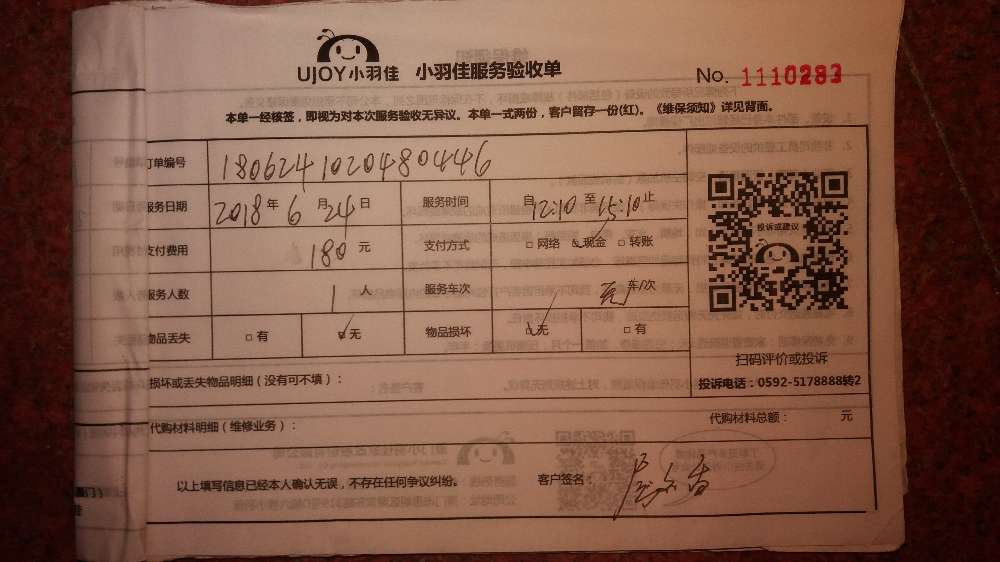 UJOY小羽佳 小羽佳服务验收单
No. 1110283
本单一经核签，即视为对本次服务验收无异议。本单一式两份，客户留存一份(红)。《维保须知》详见背面。
订单编号 180624102048044 6
服务日期 2018年6月24日 服务时间 自12:10至15:10止
支付费用 180元 支付方式 □网络 ☑现金 □转账
服务人数 1人 服务车次 车/次
物品丢失 □有 ☑无 物品损坏 ☑无 □有
投诉或建议
扫码评价或投诉
投诉电话：0592-5178888转2
损坏或丢失物品明细（没有可不填）：
代购材料明细（维修业务）： 代购材料总额： 元
以上填写信息已经本人确认无误，不存在任何争议纠纷。 客户签名：